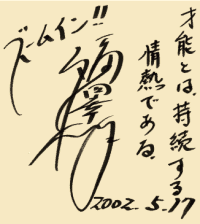 才能とは、持続する
情熱である。
ズームイン!!
2002.5.17